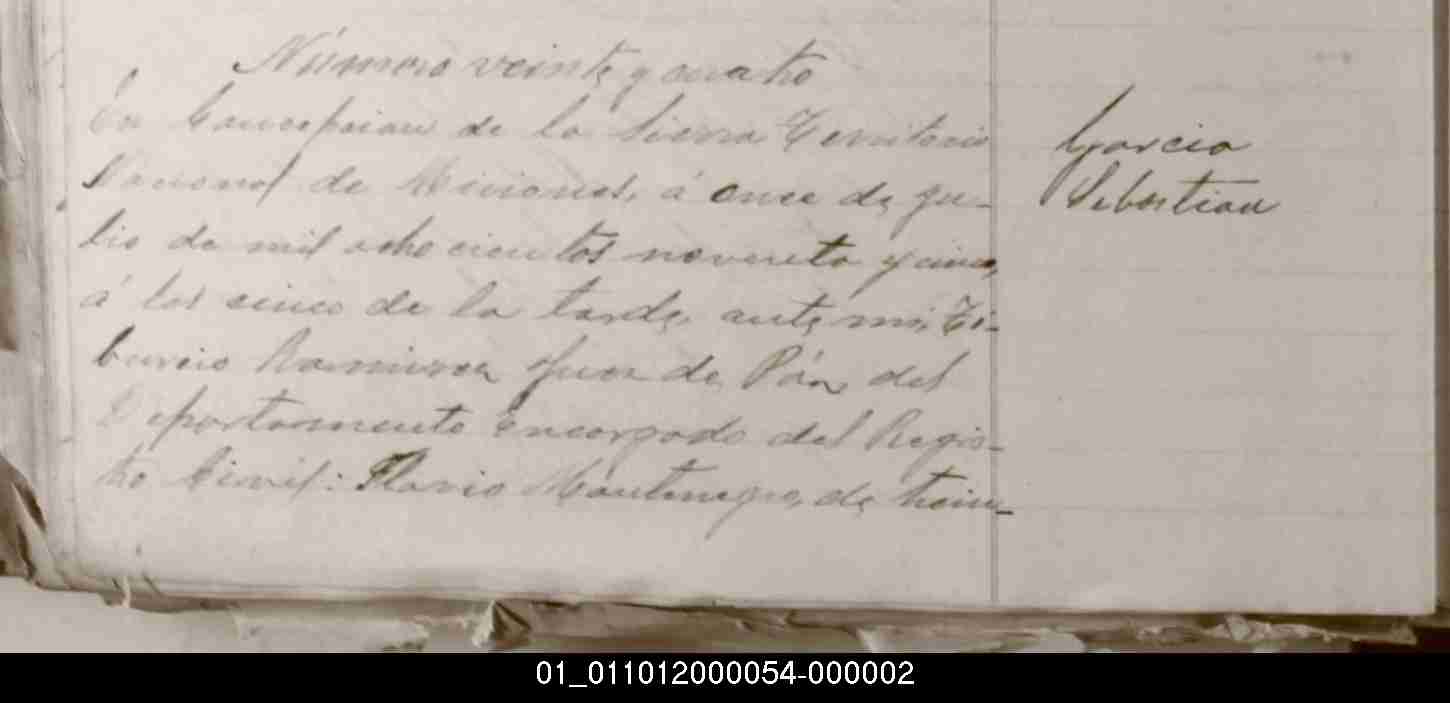 Número veinte y cuatro
En Concepcion de la Sierra Territorio
Nacional de Misiones, á once de Ju-
lio de mil ochocientos noventa y cinco,
á las cinco de la tarde, ante mi, Ti-
burcio Ramirez Juez de Páz, del
Departamento Encargado del Regis-
tro Civil: Flavio Montenegro, de trein-
Garcia
Sebastian
01_011012000054-000002